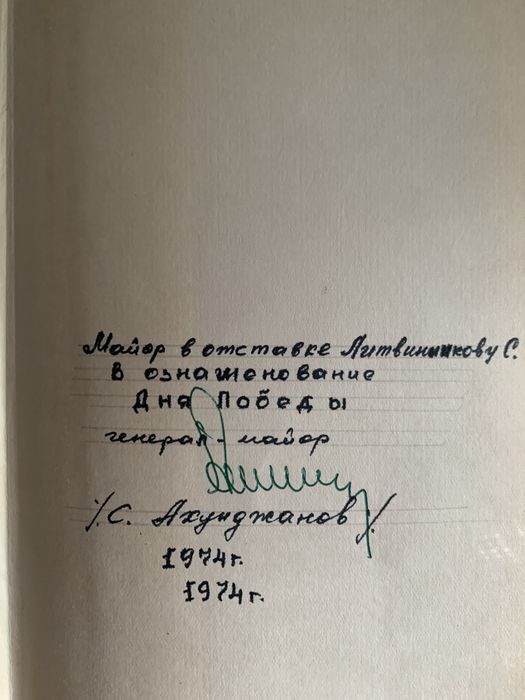 Майор в отставке Литвинникову С.
В ознаменование
Дня Победы
генерал-майор
/С. Ахунджанов/.
1974г.
1974г.